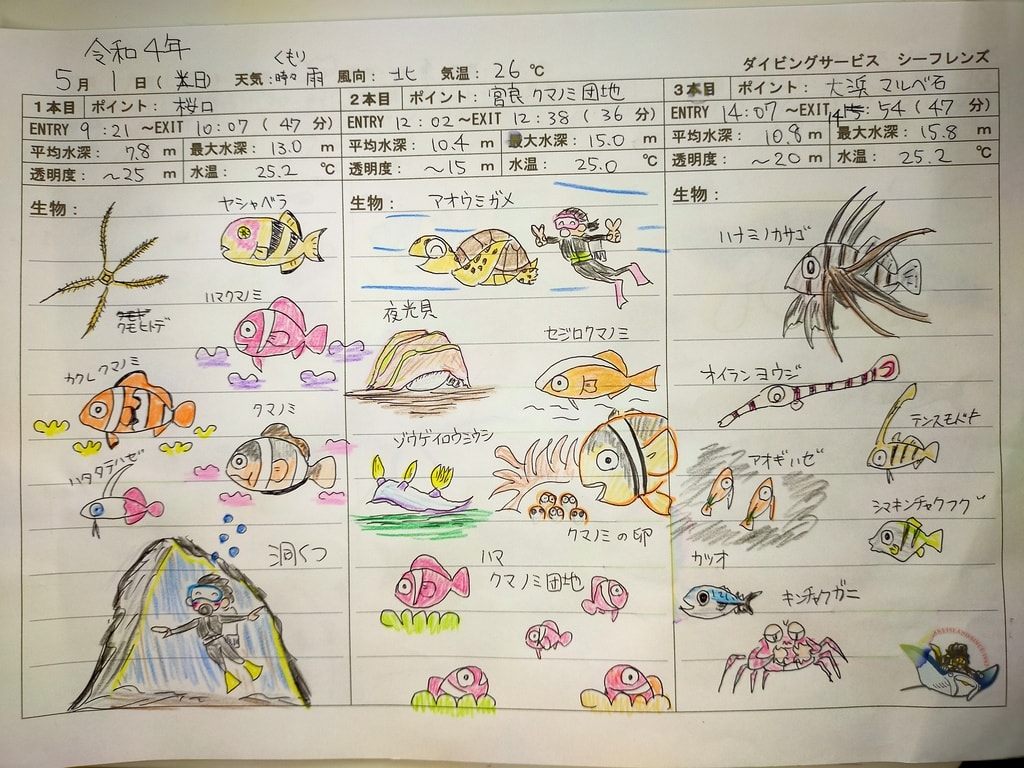 令和4年
5月 1日(日) 天気:くもり時々雨 風向:北 気温:26℃
ダイビングサービス シーフレンズ
1本目 ポイント: 桜口
ENTRY 9:21 ~EXIT 10:07 ( 47 分)
平均水深: 7.8 m 最大水深: 13.0 m
透明度: ~25 m 水温: 25.2 ℃
生物:
ヤシャベラ
クモヒトデ
ハマクマノミ
カクレクマノミ
クマノミ
ハタタテハゼ
洞くつ
2本目 ポイント: 宮良 クマノミ団地
ENTRY 12:02 ~EXIT 12:38 ( 36 分)
平均水深: 10.4 m 最大水深: 15.0 m
透明度: ~15 m 水温: 25.0 ℃
生物:
アオウミガメ
夜光貝
セジロクマノミ
ゾウゲイロウミウシ
クマノミの卵
ハマ
クマノミ団地
3本目 ポイント: 大浜 マルベ石
ENTRY 14:07 ~EXIT 14:54 (47 分)
平均水深: 10.8 m 最大水深: 15.8 m
透明度: ~20 m 水温: 25.2 ℃
生物:
ハナミノカサゴ
オイランヨウジ
テンスモドキ
アオギハゼ
シマキンチャクフグ
カツオ
キンチャクガニ